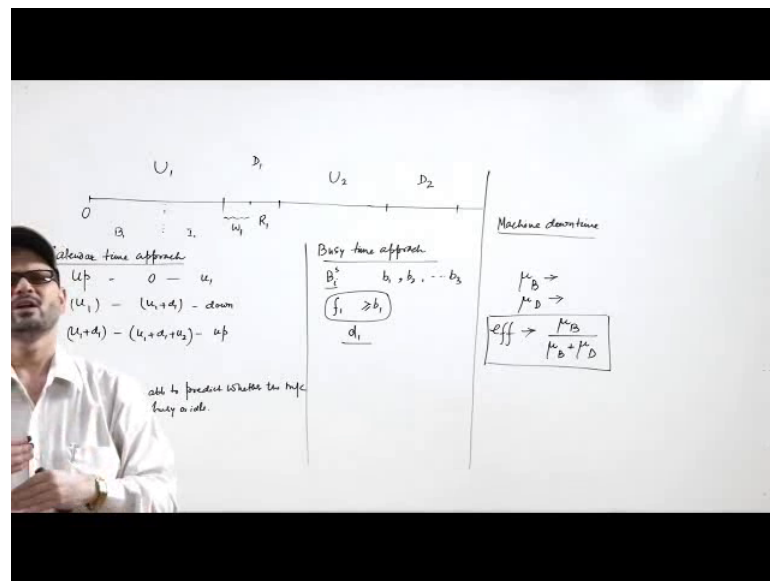 U₁ D₁ U₂ D₂
0 B₁ I₁ W₁ R₁
Calendar time approach
Up - 0 - u₁
(u₁) - (u₁+d₁) - down
(u₁+d₁) - (u₁+d₁+u₂) - up
able to predict whether the m/c
busy or idle.
Busy time approach
b₁, b₂, ... b₃
f₁ ≥ b₁
d₁
Machine downtime
μ_B →
μ_D →
eff → μ_B / (μ_B + μ_D)